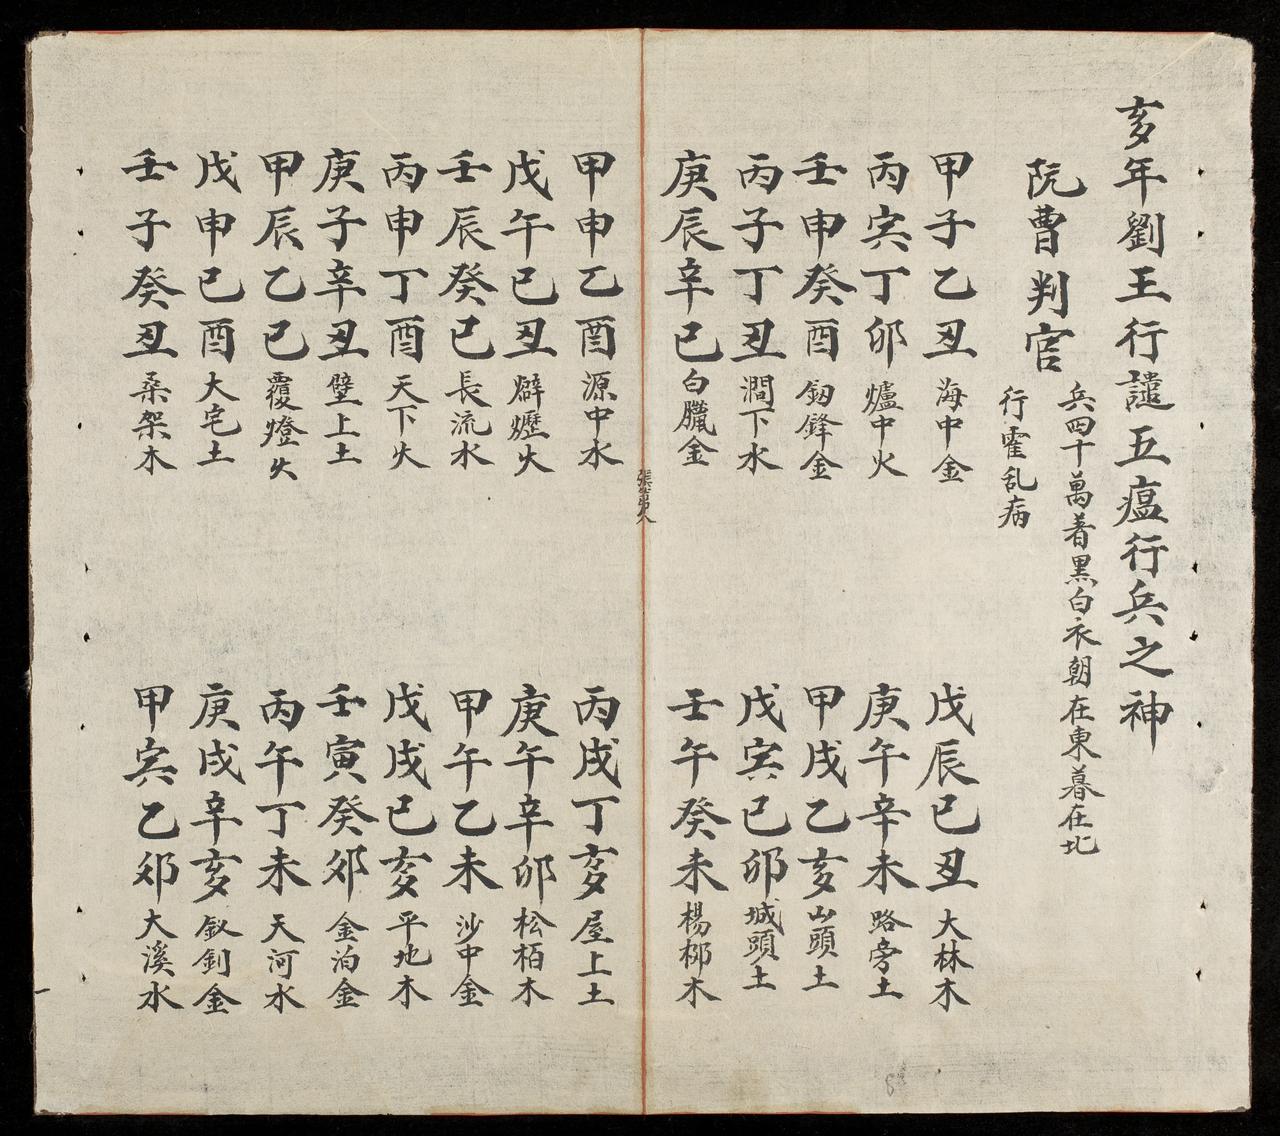 亥年劉王行譴五瘟行兵之神
阮曹判官
兵四十萬着黑白衣朝在東暮在北
行霍乱病
甲子乙丑 海中金
戊辰已丑 大林木
丙寅丁卯 爐中火
庚午辛未 路旁土
壬申癸酉 釰鋒金
甲戌乙亥 山頭土
丙子丁丑 澗下水
戊寅已卯 城頭土
庚辰辛已 白臘金
壬午癸未 楊柳木
甲申乙酉 源中水
丙戌丁亥 屋上土
戊午已丑 霹靂火
庚午辛卯 松栢木
壬辰癸已 長流水
甲午乙未 沙中金
丙申丁酉 天下火
戊戌已亥 平地木
庚子辛丑 壁上土
壬寅癸卯 金泊金
甲辰乙已 覆燈火
丙午丁未 天河水
戊申已酉 大宅土
庚戌辛亥 釵釧金
壬子癸丑 桑架木
甲寅乙卯 大溪水